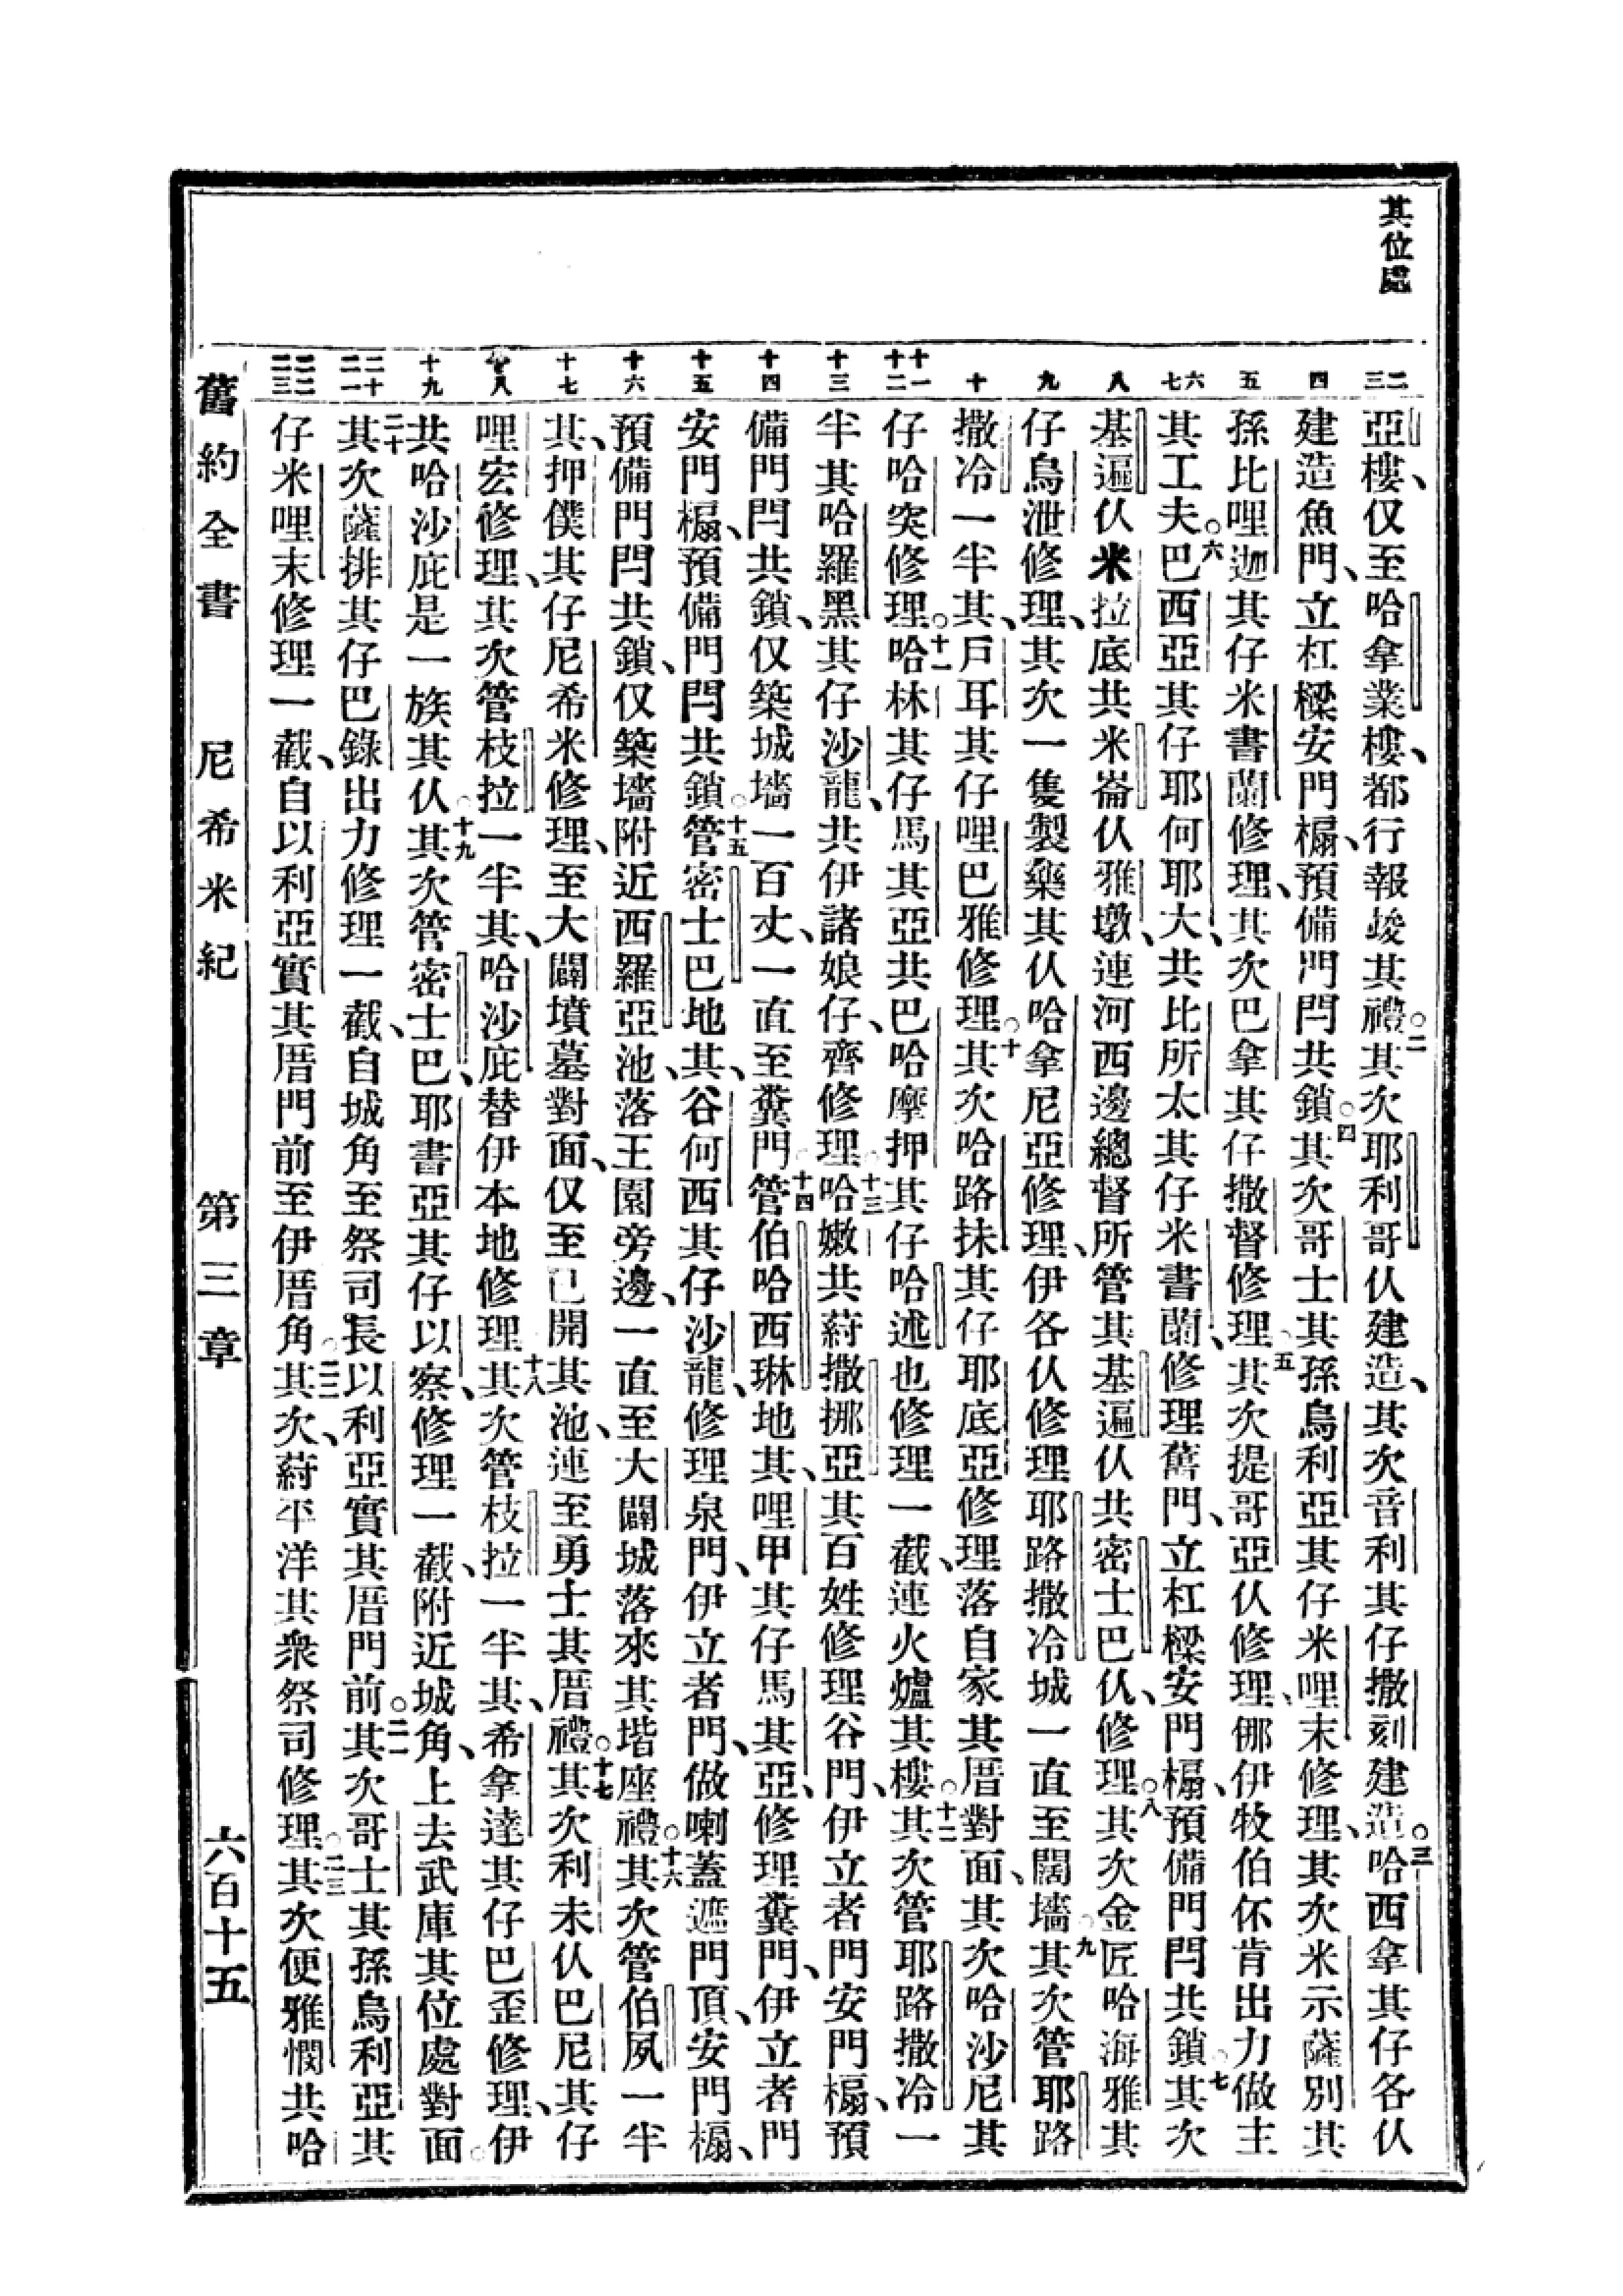 其位處
二三
四
五
六七
八
九
十
十一十二
十三
十四
十五
十六
十七
十八
十九
二十二一
二二二三
亞樓、仅至哈拿業樓、都行報竣其禮。二其次耶利哥仈建造、其次音利其仔撒刻建造。三哈西拿其仔各仈
建造魚門、立杠樑安門槅、預備門閂共鎖。四其次哥士其孫烏利亞其仔米哩末修理、其次米示薩別其
孫比哩迦其仔米書蘭修理、其次巴拿其仔撒督修理。五其次提哥亞仈修理、㑚伊牧伯伓肯出力做主
其工夫。六巴西亞其仔耶何耶大、共比所太其仔米書蘭、修理舊門、立杠樑安門槅、預備門閂共鎖。七其次
基遍仈米拉底共米崙仈雅墩、連河西邊總督所管其基遍仈共密士巴仈、修理。八其次金匠哈海雅其
仔烏泄修理、其次一隻製藥其仈哈拿尼亞修理、伊各仈修理耶路撒冷城一直至闊墻。九其次管耶路
撒冷一半其、戶耳其仔哩巴雅修理。十其次哈路抹其仔耶底亞修理落自家其厝對面、其次哈沙尼其
仔哈突修理。十一哈林其仔馬其亞共巴哈摩押其仔哈述也修理一截、連火爐其樓。十二其次管耶路撒冷一
半其哈羅黑其仔沙龍、共伊諸娘仔、齊修理。十三哈嫩共葤撒挪亞其百姓修理谷門、伊立者門安門槅、預
備門閂共鎖、仅築城墻一百丈、一直至糞門。十四管伯哈西琳地其、哩甲其仔馬其亞、修理糞門、伊立者門
安門槅、預備門閂共鎖。十五管密士巴地其、谷何西其仔沙龍、修理泉門、伊立者門、做喇蓋遮門頂、安門槅、
預備門閂共鎖、仅築墻附近西羅亞池、落王園旁邊、一直至大闢城落來其堦座禮。十六其次管伯夙一半
其、押僕其仔尼希米修理、至大闢墳墓對面、仅至已開其池、連至勇士其厝禮。十七其次利未仈巴尼其仔
哩宏修理、其次管枝拉一半其、哈沙庇替伊本地修理。十八其次管枝拉一半其、希拿達其仔巴歪修理、伊
共哈沙庇是一族其仈。十九其次管密士巴、耶書亞其仔以察、修理一截、附近城角、上去武庫其位處對面。
二十其次薩排其仔巴錄出力修理一截、自城角至祭司長以利亞實其厝門前。二一其次哥士其孫烏利亞其
仔米哩末修理一截、自以利亞實其厝門前至伊厝角。二二其次、葤平洋其衆祭司修理。二三其次便雅憫共哈
舊約全書　尼希米紀　第三章　六百十五